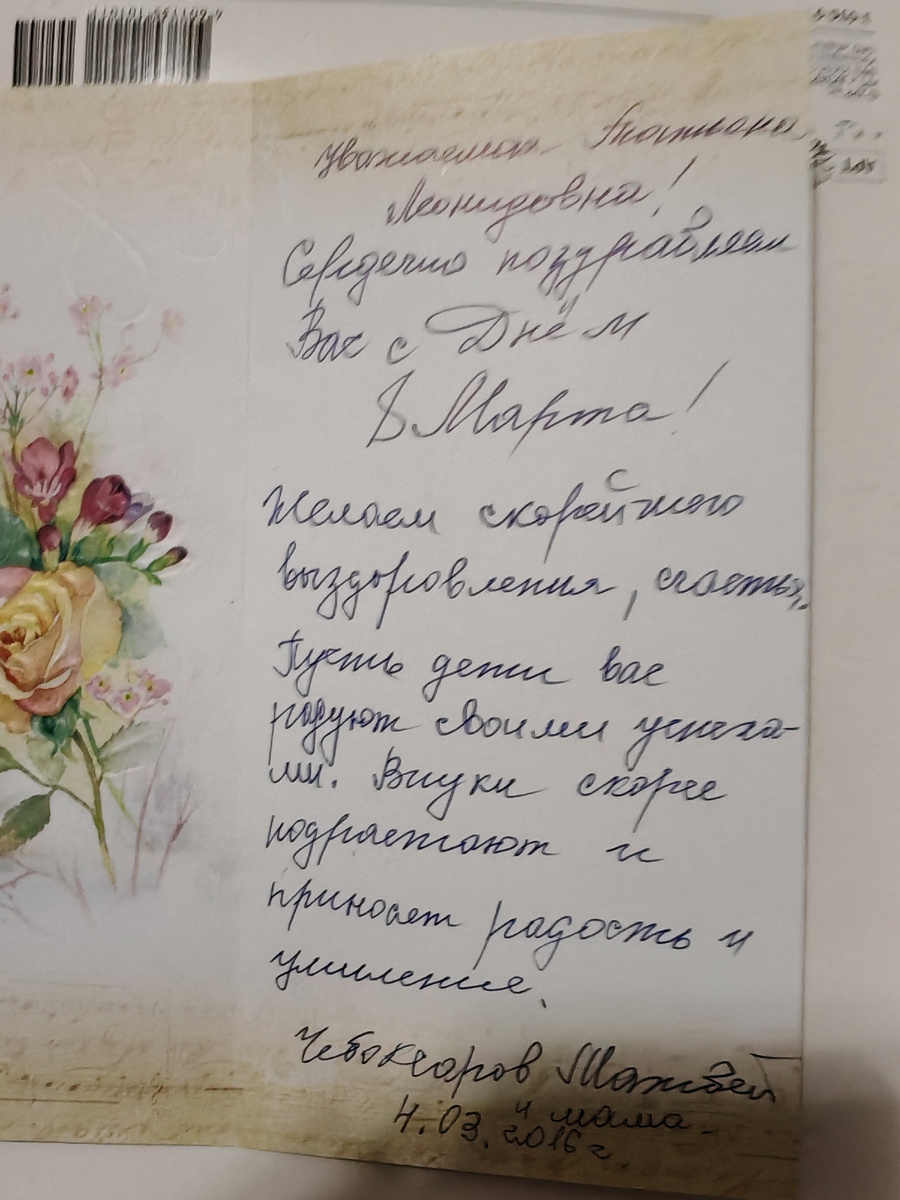 Уважаемая Татьяна
Леонидовна!
Сердечно поздравляем
Вас с Днём
8 Марта!
Желаем скорейшего
выздоровления, счастья.
Пусть дети вас
радуют своими успеха-
ми. Внуки скорее
подрастают и
приносят радость и
умиление.
Чебоксаров Матвей
и мама.
4.03.2016 г